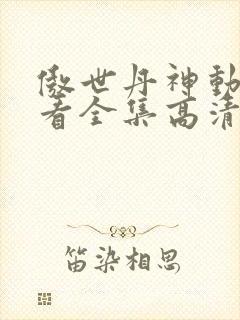 傲世丹神動
看全集高清
笛染相思